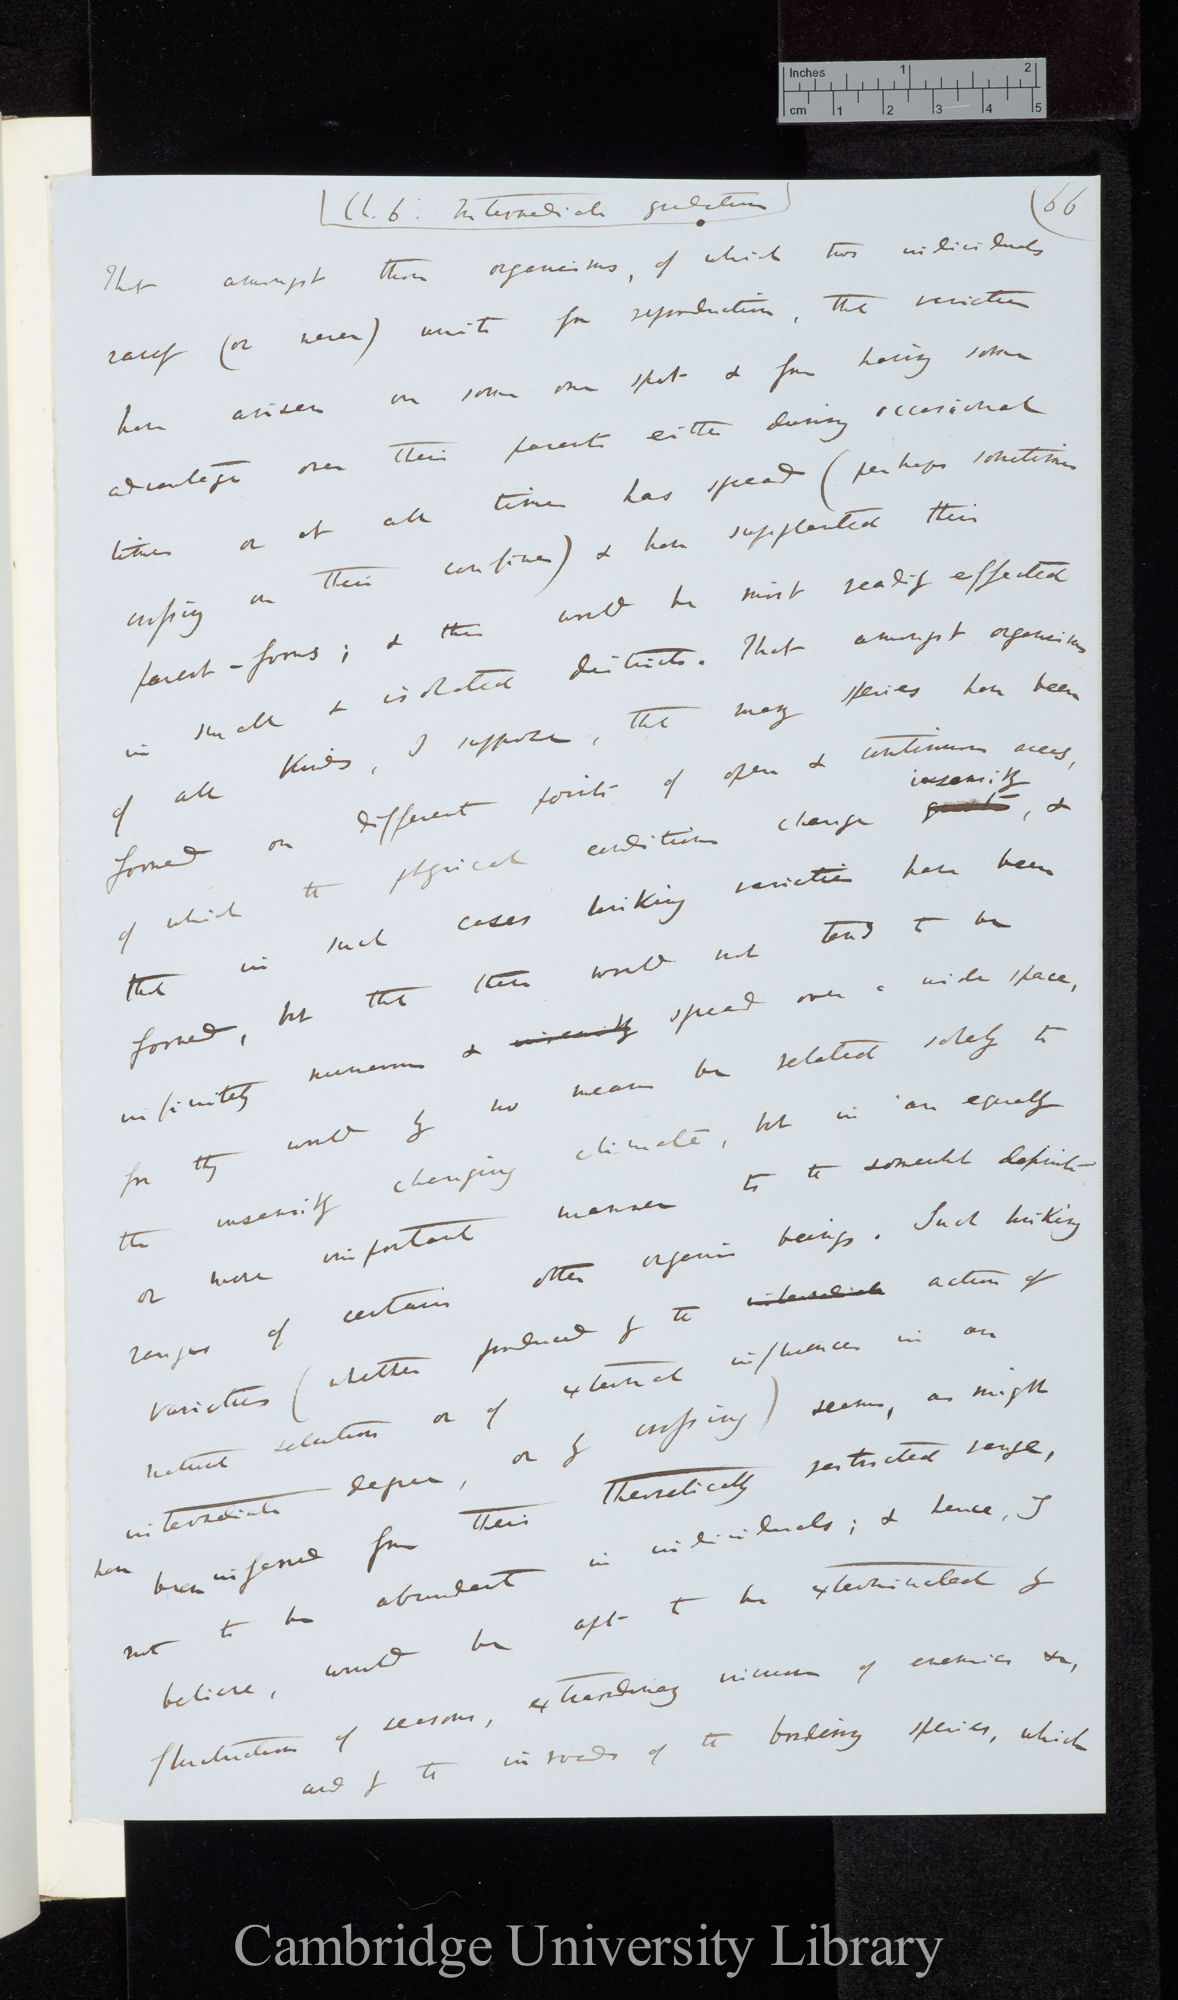 Inches 1 2
cm 1 2 3 4 5
Ch. 6: Intermediate gradations
66
That amongst those organisms, of which two individuals
rarely (or never) unite for reproduction, the varieties
have arisen on some one spot & from having some
advantage over their parents either during occasional
times or at all times has spread (perhaps sometimes
crossing on their confines) & have supplanted their
parent-forms; & this would be most readily effected
in small & isolated districts. That amongst organisms
of all kinds, I suppose, that many species have been
formed on different points of open & continuous areas,
insensibly
of which the physical conditions change, &
that in such cases linking varieties have been
formed, but that these would not tend to be
infinitely numerous & insensibly spread over a wide space,
for they would by no means be related solely to
the insensibly changing climate, but in an equally
or more important manner to the somewhat definite
ranges of certain other organic beings. Such linking
varieties (whether produced by the intermediate action of
natural selection or of external influences in an
intermediate degree, or by crossing) seems, as might
have been inferred from their theoretically restricted range,
not to be abundant in individuals; & hence, I
believe, would be apt to be exterminated by
fluctuations of seasons, extraordinary increase of enemies &c,
and by the inroads of the bordering species, which
Cambridge University Library